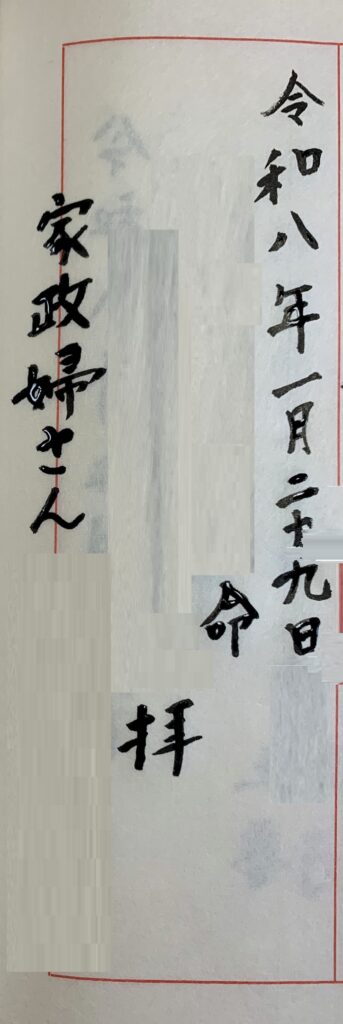 令和八年一月二十九日
命
拝
家政婦さん